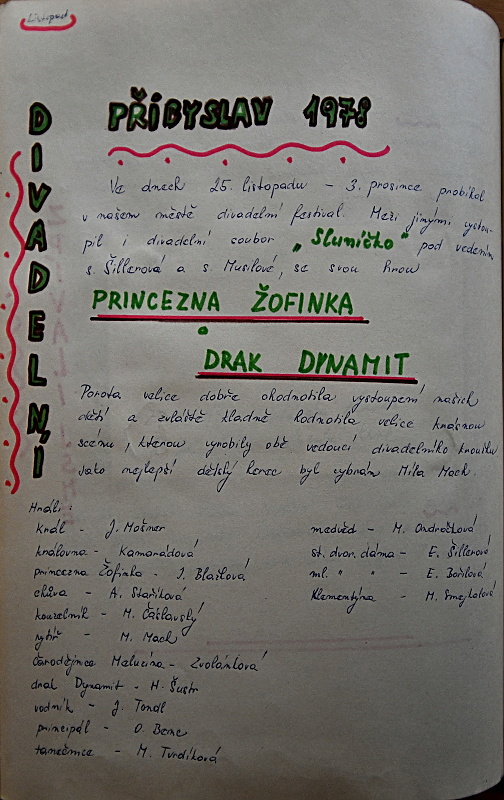 Listopad
DIVADELNÍ
PŘIBYSLAV 1978
Ve dnech 25. listopadu - 3. prosince probíhal
v našem městě divadelní festival. Mezi jinými vystou-
pil i divadelní soubor „Sluníčko" pod vedením
s. Šillerové a s. Musilové, se svou hrou
PRINCEZNA ŽOFINKA
a
DRAK DYNAMIT
Porota velice dobře ohodnotila vystoupení našich
dětí a zvláště kladně hodnotila velice krásnou
scénu, kterou vyrobily obě vedoucí divadelního kroužku
jako nejlepší dětský herec byl vybrán Míla Mach.
Hráli:
král - J. Mošner
královna - Kamarádová
princezna Žofinka - I. Blažková
chůva - A. Staříková
kouzelník - M. Čáslavský
rytíř - M. Mach
čarodějnice Malucína - Zvolánková
drak Dynamit - H. Šustr
vodník - J. Tondl
principál - O. Benc
tanečnice - M. Tvrdíková
medvěd - M. Ondráčková
st. dvor. dáma - E. Šillerová
ml. " " - E. Bořilová
Klementýna - M. Smejkalová